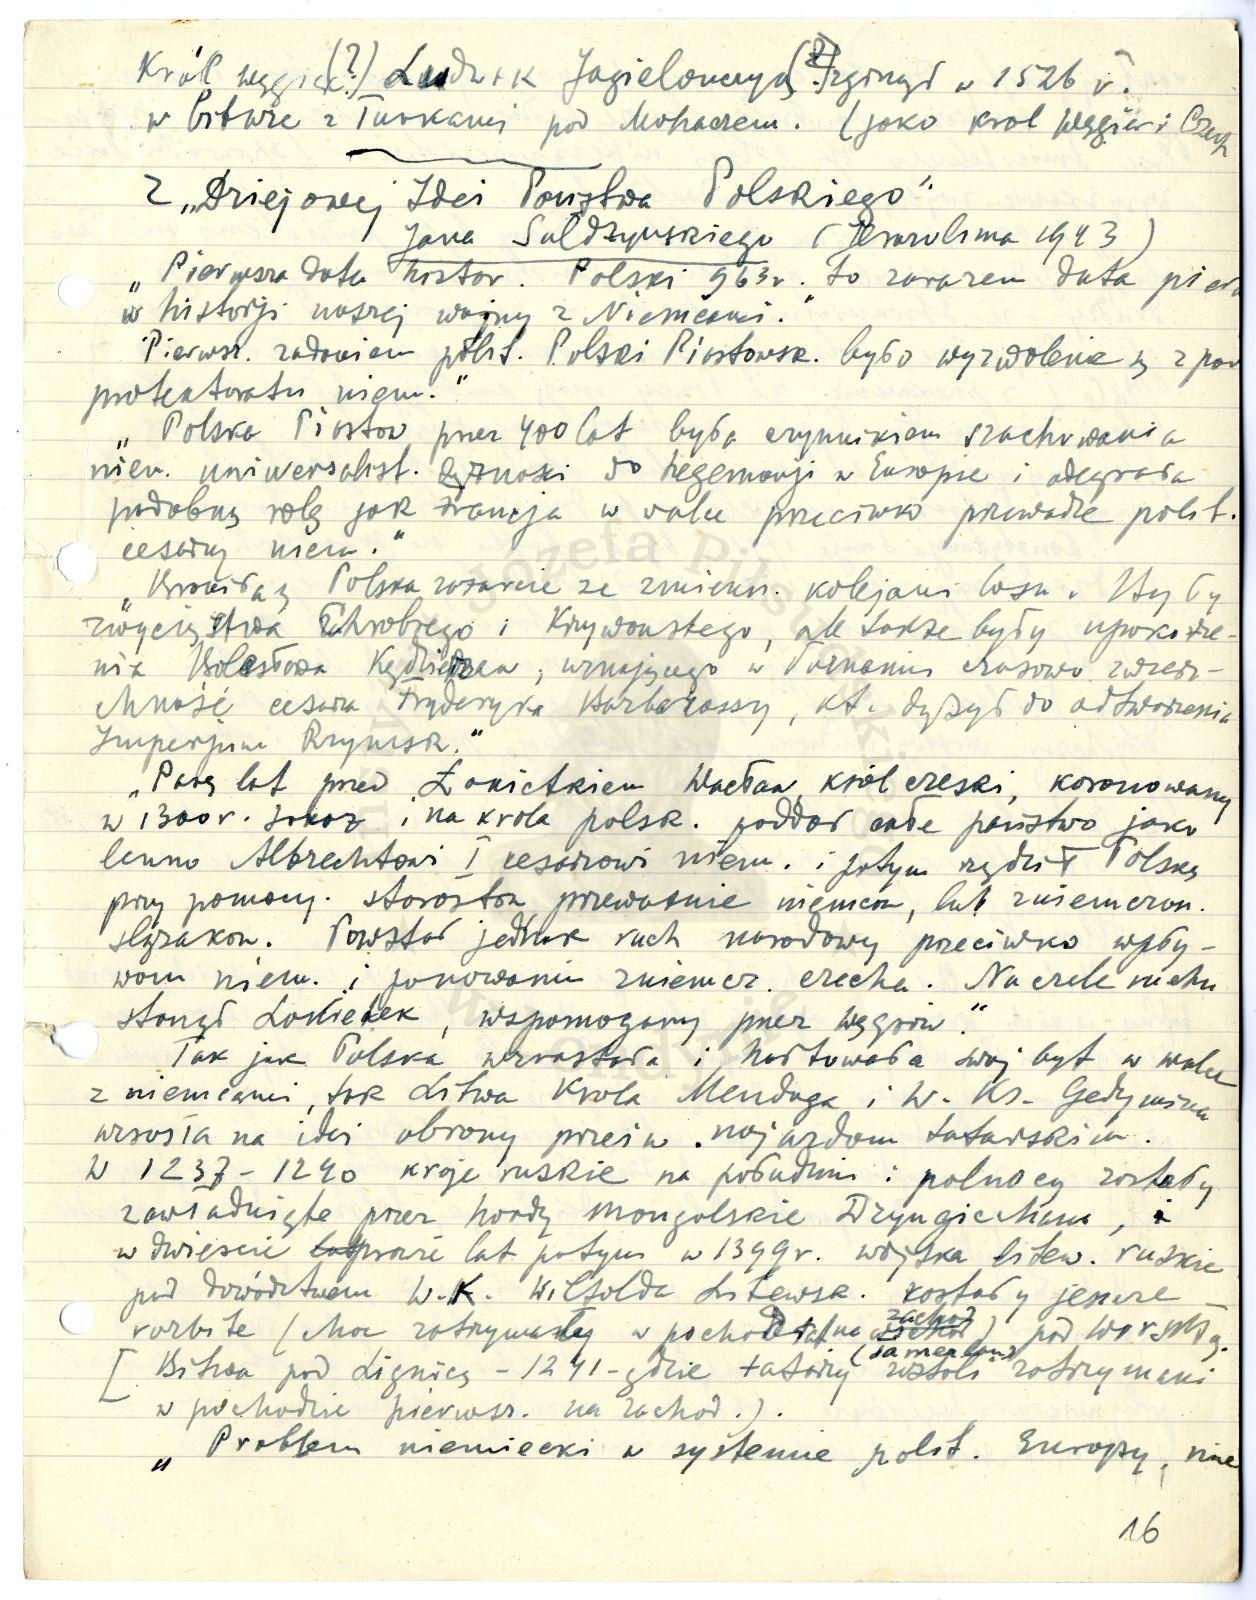 Król węgier(?) Ludwik Jagielonczyk(?) zginął w 1526 r.
w bitwie z Turkami pod Mohaczem. (jako krol węgier i Czech
z „Dziejowej Idei Państwa Polskiego"
Jana (Jerozolima 1943)
„Pierwsza data histor. Polski 963 r. to zarazem data pierw
w historji naszej wojny z Niemcami."
Pierwsz. zadaniem polit. Polski Piastowsk. było wyzwolenie się z pod
protektoratu niem."
„Polska Piastow przez 400 lat była czynnikiem szachowania
niem. uniwersalist. dążności do hegemonji w Europie i odegrała
podobną rolę jak Francja w walce przeciwko przewadze polit.
cesarzy niem."
„Broniła się Polska zażarcie ze zmienn. kolejami losu. Były
zwycięstwa Chrobrego i Krzywoustego, ale także były upokorze-
nia Bolesława Kędzierzaw, uznającego w Poznaniu czasowo zwierz-
chność cesarza Fryderyka Barbarossy, kt. dążył do odtworzenia
Imperjum Rzymsk."
„Parę lat przed Łokietkiem Wacław, król czeski, koronowany
w 1300 r. i na krola polsk. poddał całe państwo jako
lenno Albrechtowi I cesarzowi niem. i potym rządził Polską
przy pomocy. starostow przeważnie niemcow, lub zniemczon.
slązakow. Powstał jednak ruch narodowy przeciwko wpły-
wom niem. i panowaniu zniemcz. czecha. Na czele ruchu
stanął Łokietek, wspomogany przez węgrów."
Tak jak Polska wzrastała i hartowała swoj byt w walce
z niemcami, tak Litwa Krola Mendoga i W. Ks. Gedymina
wzrosła na idei obrony przeciw. najazdom tatarskim.
W 1237-1240 kraje ruskie na południu i połnocy zostały
zawładnięte przez hordy mongolskie Dzyngischana, i
w dwieście prawie lat potym w 1399 r. wojska litew. ruskie
pod dowództwem W.K. Witolda Litewsk. zostały jeszcze
rozbite (choc zatrzymały w pochodzie na zachod) pod Worsklą.
(Tamerlana)
[Bitwa pod Lignicą - 1241 - gdzie tatarzy zostali zatrzymani
w pochodzie pierwsz. na zachod.).
„Problem niemiecki w systemie polit. Europy, nie
16